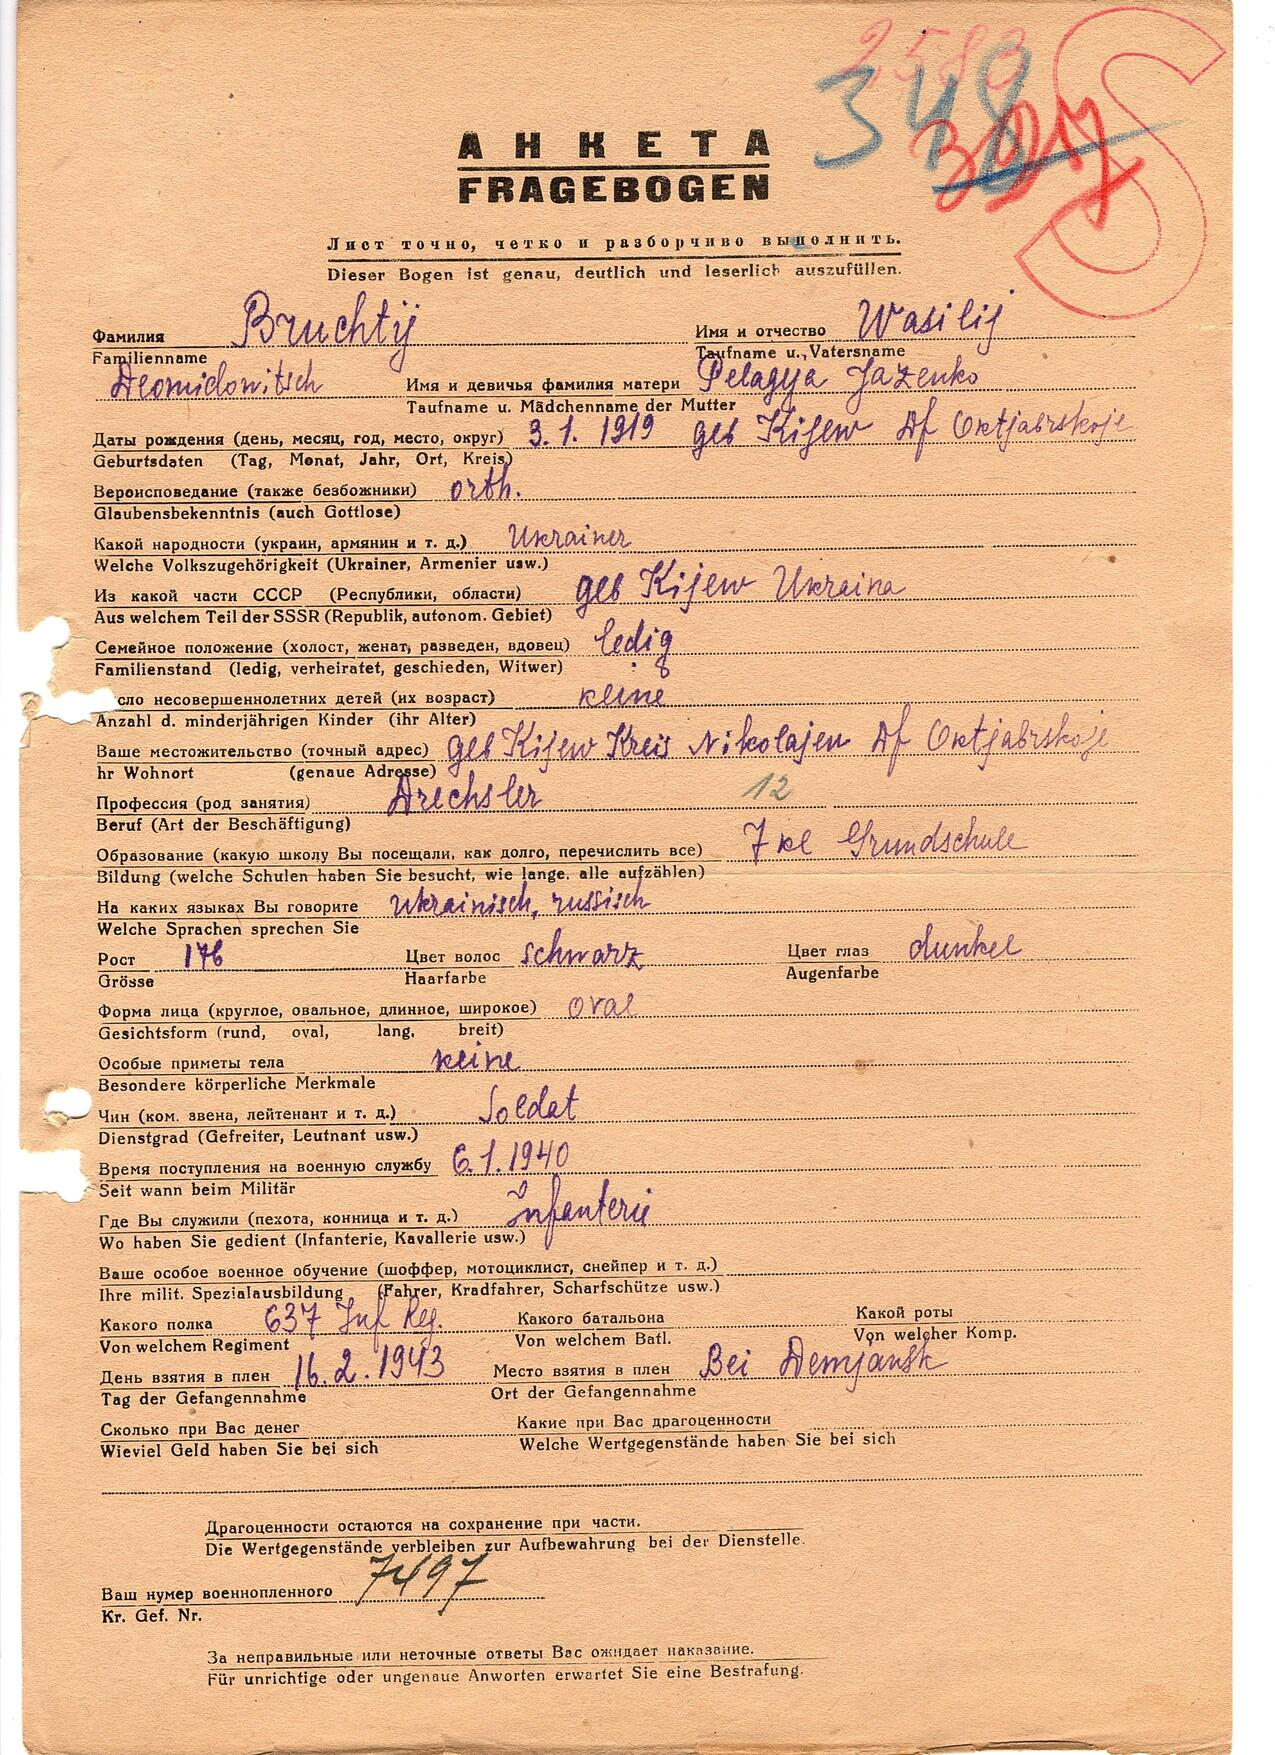 2583
348
3217
S
АНКЕТА
FRAGEBOGEN
Лист точно, четко и разборчиво выполнить.
Dieser Bogen ist genau, deutlich und leserlich auszufüllen.
Фамилия Bruchtij Имя и отчество Wasilij
Familienname Taufname u. Vatersname
Deomidowitsch Имя и девичья фамилия матери Pelagya Jazenko
Taufname u. Mädchenname der Mutter
Даты рождения (день, месяц, год, место, округ) 3. 1. 1919 geb Kijew Df Oktjabrskoje
Geburtsdaten (Tag, Monat, Jahr, Ort, Kreis)
Вероисповедание (также безбожники) orth.
Glaubensbekenntnis (auch Gottlose)
Какой народности (украин, армянин и т. д.) Ukrainer
Welche Volkszugehörigkeit (Ukrainer, Armenier usw.)
Из какой части СССР (Республики, области) geb Kijew Ukraina
Aus welchem Teil der SSSR (Republik, autonom. Gebiet)
Семейное положение (холост, женат, разведен, вдовец) ledig
Familienstand (ledig, verheiratet, geschieden, Witwer)
сло несовершеннолетних детей (их возраст) keine
Anzahl d. minderjährigen Kinder (ihr Alter)
Ваше местожительство (точный адрес) geb Kijew Kreis Nikolajew Df Oktjabrskoje
hr Wohnort (genaue Adresse)
Профессия (род занятия) Drechsler 12
Beruf (Art der Beschäftigung)
Образование (какую школу Вы посещали, как долго, перечислить все) 7 kl Grundschule
Bildung (welche Schulen haben Sie besucht, wie lange, alle aufzählen)
На каких языках Вы говорите ukrainisch, russisch
Welche Sprachen sprechen Sie
Рост 176 Цвет волос schwarz Цвет глаз dunkel
Grösse Haarfarbe Augenfarbe
Форма лица (круглое, овальное, длинное, широкое) oval
Gesichtsform (rund, oval, lang, breit)
Особые приметы тела keine
Besondere körperliche Merkmale
Чин (ком. звена, лейтенант и т. д.) Soldat
Dienstgrad (Gefreiter, Leutnant usw.)
Время поступления на военную службу 6. 1. 1940
Seit wann beim Militär
Где Вы служили (пехота, конница и т. д.) Infanterie
Wo haben Sie gedient (Infanterie, Kavallerie usw.)
Ваше особое военное обучение (шоффер, мотоциклист, снейпер и т. д.)
Ihre milit. Spezialausbildung (Fahrer, Kradfahrer, Scharfschütze usw.)
Какого полка 637 Inf Reg. Какого батальона Какой роты
Von welchem Regiment Von welchem Batl. Von welcher Komp.
День взятия в плен 16. 2. 1943 Место взятия в плен Bei Demjansk
Tag der Gefangennahme Ort der Gefangennahme
Сколько при Вас денег Какие при Вас драгоценности
Wieviel Geld haben Sie bei sich Welche Wertgegenstände haben Sie bei sich
Драгоценности остаются на сохранение при части.
Die Wertgegenstände verbleiben zur Aufbewahrung bei der Dienstelle.
Ваш нумер военнопленного 7497
Kr. Gef. Nr.
За неправильные или неточные ответы Вас ожидает наказание.
Für unrichtige oder ungenaue Anworten erwartet Sie eine Bestrafung.